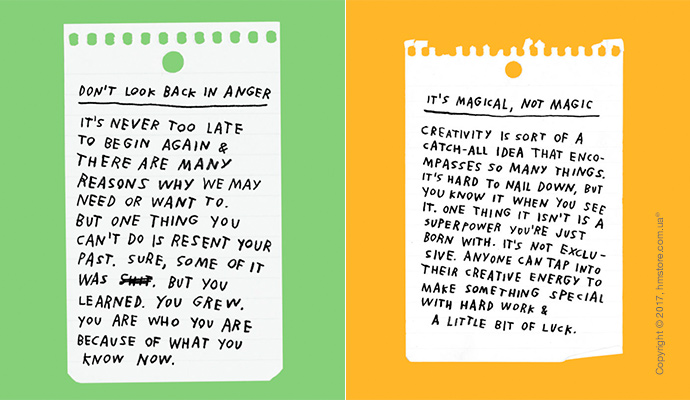 DON'T LOOK BACK IN ANGER
IT'S NEVER TOO LATE
TO BEGIN AGAIN &
THERE ARE MANY
REASONS WHY WE MAY
NEED OR WANT TO.
BUT ONE THING YOU
CAN'T DO IS RESENT YOUR
PAST. SURE, SOME OF IT
WAS SHIT. BUT YOU
LEARNED. YOU GREW.
YOU ARE WHO YOU ARE
BECAUSE OF WHAT YOU
KNOW NOW.
IT'S MAGICAL, NOT MAGIC
CREATIVITY IS SORT OF A
CATCH-ALL IDEA THAT ENCO-
MPASSES SO MANY THINGS.
IT'S HARD TO NAIL DOWN, BUT
YOU KNOW IT WHEN YOU SEE
IT. ONE THING IT ISN'T IS A
SUPERPOWER YOU'RE JUST
BORN WITH. IT'S NOT EXCLU-
SIVE. ANYONE CAN TAP INTO
THEIR CREATIVE ENERGY TO
MAKE SOMETHING SPECIAL
WITH HARD WORK &
A LITTLE BIT OF LUCK.
Copyright © 2017, hmstore.com.ua®